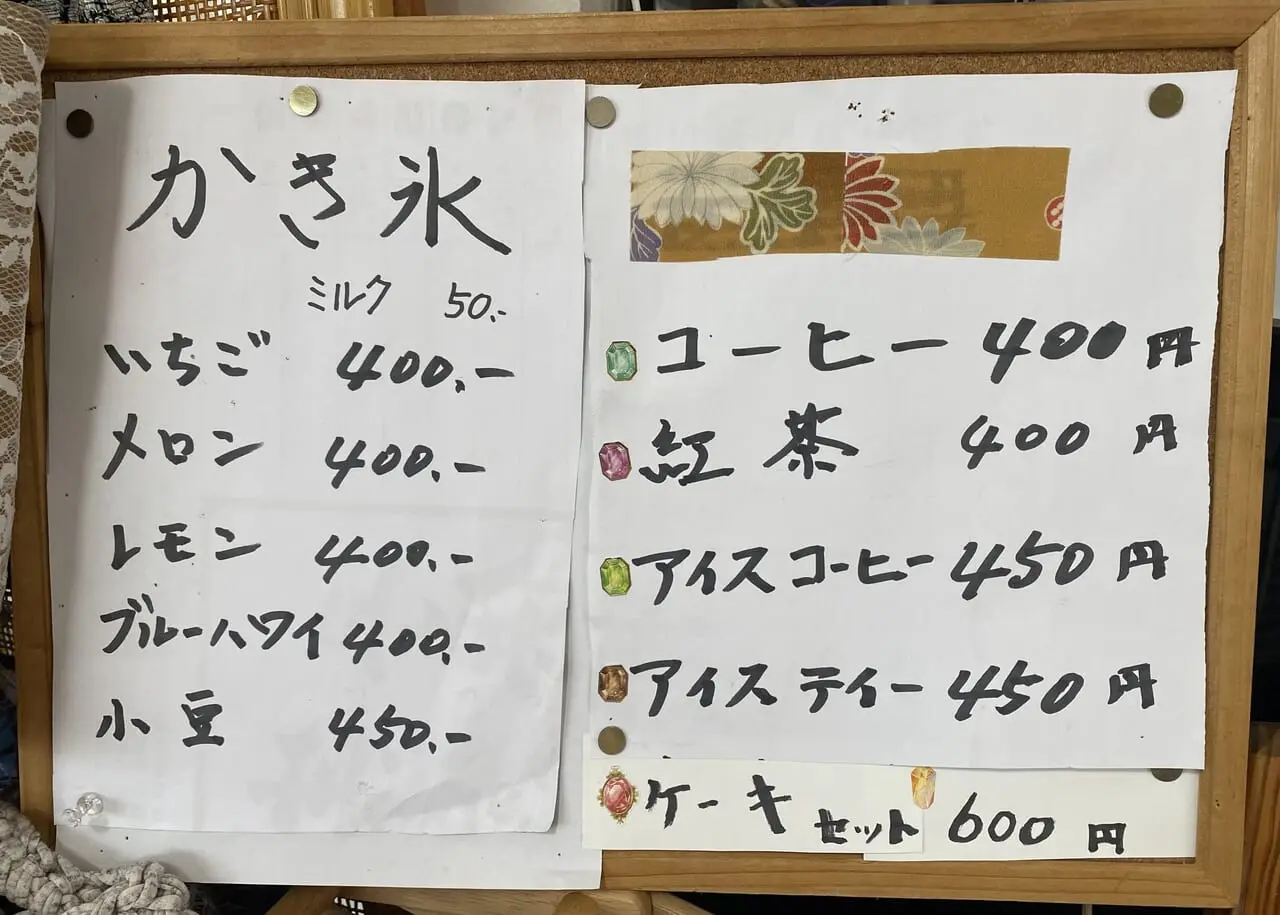 かき氷
ミルク 50.-
いちご 400.-
メロン 400.-
レモン 400.-
ブルーハワイ 400.-
小豆 450.-
コーヒー 400円
紅茶 400円
アイスコーヒー 450円
アイスティー 450円
ケーキセット 600円